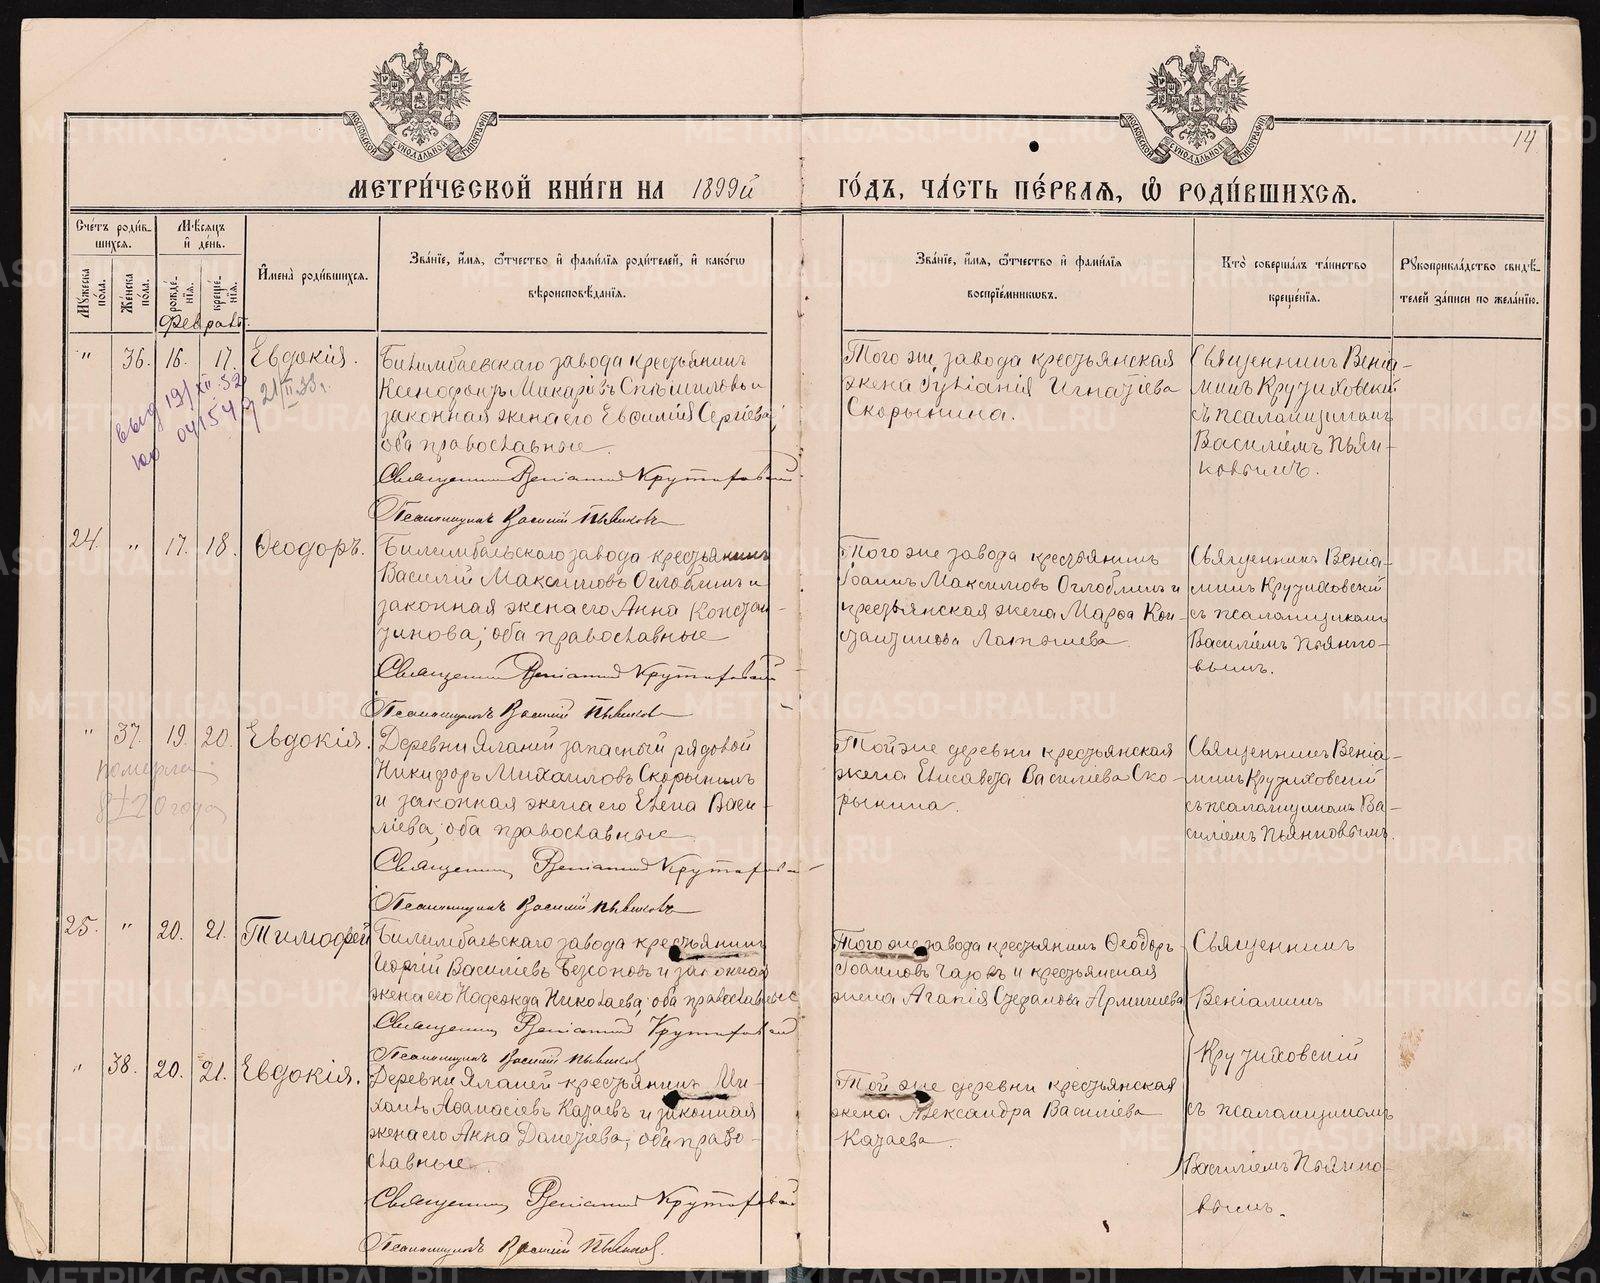 МОСКОВСКОЙ СѴНОДАЛЬНОЙ ТИПОГРАФІИ
МОСКОВСКОЙ СѴНОДАЛЬНОЙ ТИПОГРАФІИ
14
МЕТРИ́ЧЕСКОЙ КНИ́ГИ НА 1899й
ГО́ДЪ, ЧА́СТЬ ПЕ́РВАѦ, Ѡ҆ РОДИ́ВШИХСѦ.
Сче́тъ роди́в-
шихся.
Му́жеска по́ла.
Же́нска по́ла.
Мѣ́сяцъ
и҆ де́нь.
рожде́-
нїѧ.
креще́-
нїѧ.
И҆мена̀ роди́вшихся.
Зва́нїе, и҆́мя, ѻ҆́тчество и҆ фами́лїя роди́телей, и҆ како́гѡ
вѣроисповѣ́данїя.
Зва́нїе, и҆́мя, ѻ҆́тчество и҆ фами́лїя
воспрїе́мниковъ.
Кто̀ соверша́лъ та́инство
креще́нїя.
Рꙋкоприкла́дство свидѣ́-
телей за́писи по жела́нїю.
Феврал.
" 36. 16. 17. Евдокія.
Билимбаевскаго завода крестьянинъ
Ксенофонтъ Макаріевъ Спѣшиловъ и
законная жена его Евфимія Сергіева,
оба православные.
Священникъ Веніаминъ Крутиховскій
Псаломщикъ Василій Пьянковъ
Того же завода крестьянская
жена Іуліанія Игнатіева
Скорынина.
Священникъ Веніа-
минъ Крутиховскій
съ псаломщикомъ
Василіемъ Пьян-
ковымъ.
выд 19/XII 32
041549
21/II 33 г.
24. " 17. 18. Ѳеодоръ.
Билимбаевскаго завода крестьянинъ
Василій Максимовъ Оглоблинъ и
законная жена его Анна Констан-
тинова; оба православные
Священникъ Веніаминъ Крутиховскій
Псаломщикъ Василій Пьянковъ
Того же завода крестьянинъ
Іоаннъ Максимовъ Оглоблинъ и
крестьянская жена Марѳа Кон-
стантинова Латышева.
Священникъ Веніа-
минъ Крутиховскій
съ псаломщикомъ
Василіемъ Пьянко-
вымъ.
" 37. 19. 20. Евдокія.
померла
Деревни Яланей запасной рядовой
Никифоръ Михаиловъ Скорынинъ
и законная жена его Елена Васи-
ліева, оба православные
Священникъ Веніаминъ Крутиховскій
Псаломщикъ Василій Пьянковъ
Той же деревни крестьянская
жена Елисавета Василіева Ско-
рынина.
Священникъ Веніа-
минъ Крутиховскій
съ псаломщикомъ Ва-
силіемъ Пьянковымъ.
25. " 20. 21. Тимофей
Билимбаевскаго завода крестьянинъ
Георгій Василіевъ Безсоновъ и законная
жена его Надежда Николаева; оба православные
Священникъ Веніаминъ Крутиховскій
Псаломщикъ Василій Пьянковъ
Того же завода крестьянинъ Ѳеодоръ
Іоанновъ и крестьянская
жена Агапія Стефанова
Священникъ
Веніаминъ
Крутиховскій
съ псаломщикомъ
Василіемъ Пьянко-
вымъ.
" 38. 20. 21. Евдокія.
Деревни Яланей крестьянинъ Ми-
хаилъ Аѳанасіевъ Катаевъ и законная
жена его Анна Дометіева; оба право-
славные.
Священникъ Веніаминъ Крутиховскій
Псаломщикъ Василій Пьянковъ.
Той же деревни крестьянская
жена Александра Василіева
Катаева.